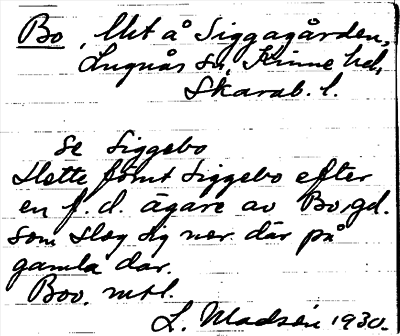 Bo, lht å Siggagården,
Lugnås sn, Kinne hd,
Skarab. l.
Se Siggebo
Hette förut Siggebo efter
en f. d. ägare av Bo gd.
som slog sig ner där på
gamla dar.
Boo. mtl.
L. Madsén 1930.